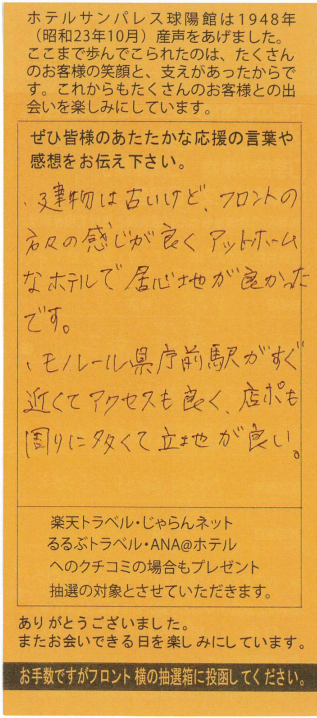 ホテルサンパレス球陽館は1948年
（昭和23年10月）産声をあげました。
ここまで歩んでこられたのは、たくさん
のお客様の笑顔と、支えがあったからで
す。これからもたくさんのお客様との出
会いを楽しみにしています。
ぜひ皆様のあたたかな応援の言葉や
感想をお伝え下さい。
・建物は古いけど、フロントの
方々の感じが良くアットホーム
なホテルで居心地が良かった
です。
・モノレール県庁前駅がすぐ
近くてアクセスも良く、店舗も
周りに多くて立地が良い。
楽天トラベル・じゃらんネット
るるぶトラベル・ANA@ホテル
へのクチコミの場合もプレゼント
抽選の対象とさせていただきます。
ありがとうございました。
またお会いできる日を楽しみにしています。
お手数ですがフロント横の抽選箱に投函してください。